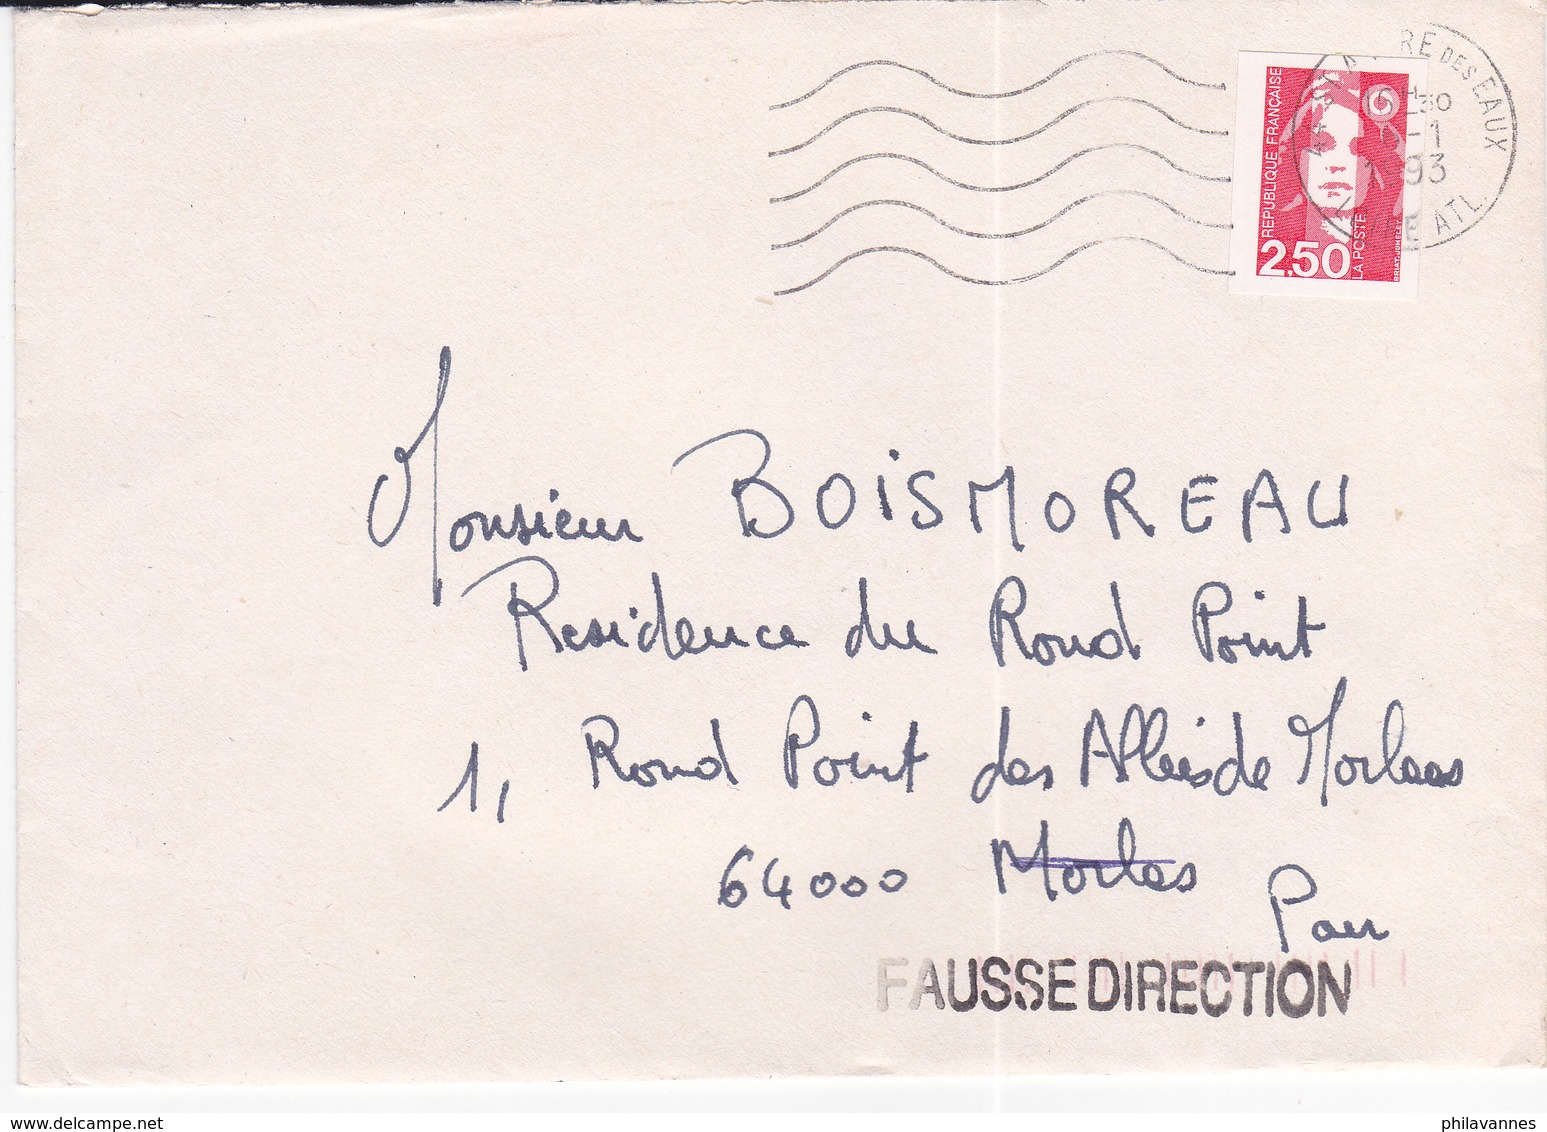 RE DES EAUX
30
-1
93
ATL.
REPUBLIQUE FRANÇAISE
2,50
LA POSTE
Monsieur BOISMOREAU
Residence du Rond Point
1, Rond Point des Allées de Morlaas
64000 Morlas
Pau
FAUSSE DIRECTION
www.delcampe.net
philavannes